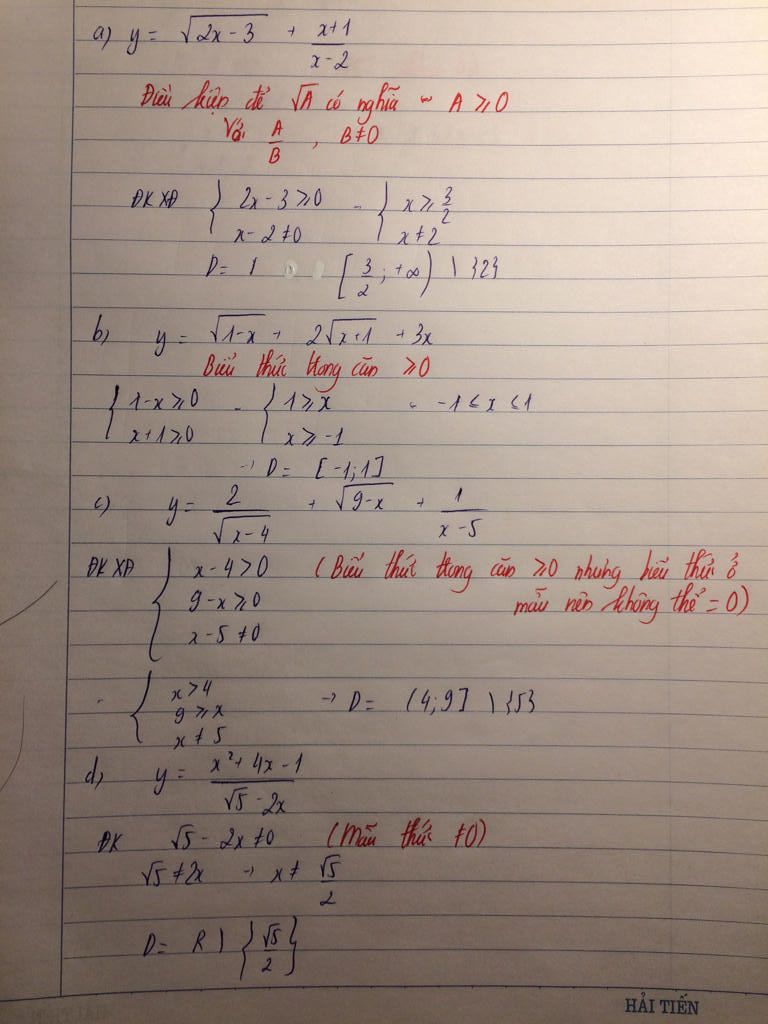 a) y = √(2x - 3) + (x+1)/(x-2)
Điều kiện để √A có nghĩa ~ A ≥ 0
Với A/B , B≠0
ĐKXĐ { 2x - 3 ≥ 0 ~ { x ≥ 3/2
x - 2 ≠ 0 x ≠ 2
D = [3/2; +∞) \ {2}
b) y = √(1-x) + 2√(x+1) + 3x
Biểu thức trong căn ≥0
{ 1-x ≥ 0 ~ { 1 ≥ x ~ -1 ≤ x ≤ 1
x+1 ≥ 0 x ≥ -1
→ D = [-1;1]
c) y = 2/√(x-4) + √(9-x) + 1/(x-5)
ĐKXĐ { x - 4 > 0 (Biểu thức trong căn ≥0 nhưng biểu thức ở
9 - x ≥ 0 mẫu nên không thể = 0)
x - 5 ≠ 0
~ { x > 4
9 ≥ x → D = (4;9] \ {5}
x ≠ 5
d) y = (x² + 4x - 1)/(√5 - 2x)
ĐK √5 - 2x ≠ 0 (Mẫu thức ≠0)
√5 ≠ 2x → x ≠ √5/2
D = R \ {√5/2}
HẢI TIẾN